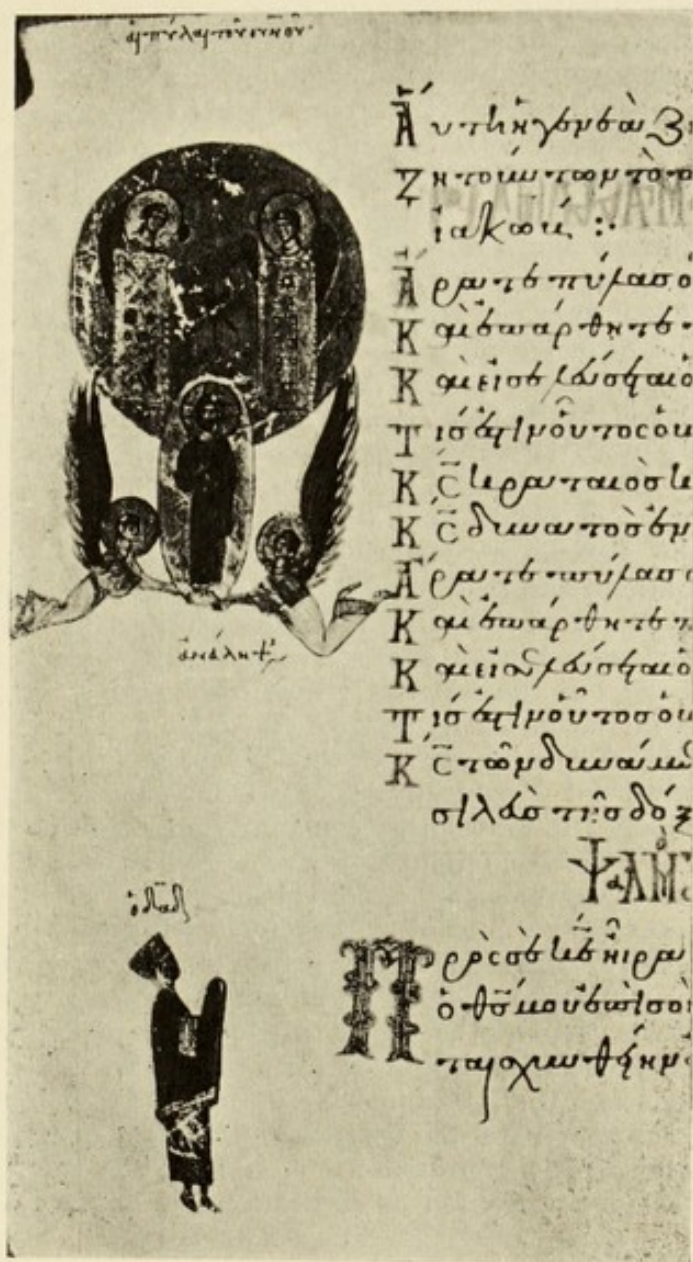 αἱ πύλαι τοῦ οὐνοῦ·
Αὕτη ἡ γενεὰ ζη
Ζητούντων τὸ π
ἰακώβ :·
Ἄρατε πύλας ὁ
Καὶ ἐπάρθητε
Καὶ εἰσελεύσεται ὁ
Τίς ἐστιν οὗτος ὁ
Κ̅Σ̅ κραταιὸς κ
Κ̅Σ̅ δυνατὸς ἐν
Ἄρατε πύλας
Καὶ ἐπάρθητε π
Καὶ εἰσελεύσεται ὁ
Τίς ἐστιν οὗτος ὁ
Κ̅Σ̅ τῶν δυνάμε
σιλεὺς τῆς δόξ
ἀνάληψ
ΨΑΛΜΟ
ὁ δα̅δ
Πρὸς σὲ κ̅ε̅ ἦιρα
ὁ θ̅ς̅ μου ἐπὶ σοὶ
ταισχυνθείην